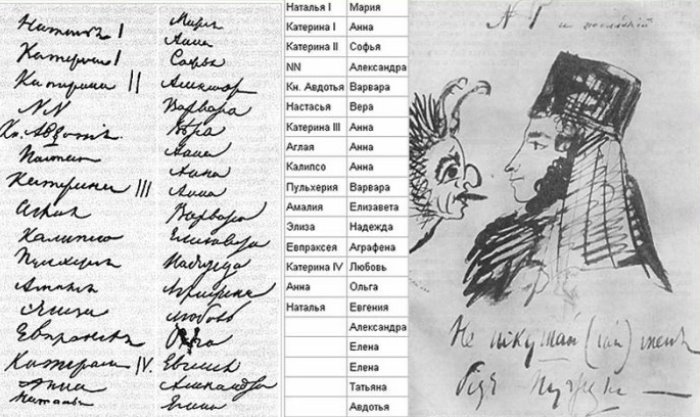 Наталья I
Катерина I
Катерина II
NN
Кн. Авдотья
Настасья
Катерина III
Аглая
Калипсо
Пульхерия
Амалия
Элиза
Евпраксея
Катерина IV.
Анна
Наталья
Мария
Анна
Софья
Александра
Варвара
Вера
Анна
Анна
Анна
Варвара
Елизавета
Надежда
Аграфена
Любовь
Ольга
Евгения
Александра
Елена
Наталья I Мария
Катерина I Анна
Катерина II Софья
NN Александра
Кн. Авдотья Варвара
Настасья Вера
Катерина III Анна
Аглая Анна
Калипсо Анна
Пульхерия Варвара
Амалия Елизавета
Элиза Надежда
Евпраксея Аграфена
Катерина IV Любовь
Анна Ольга
Наталья Евгения
Александра
Елена
Елена
Татьяна
Авдотья
Не искушай (сай) меня
без нужды